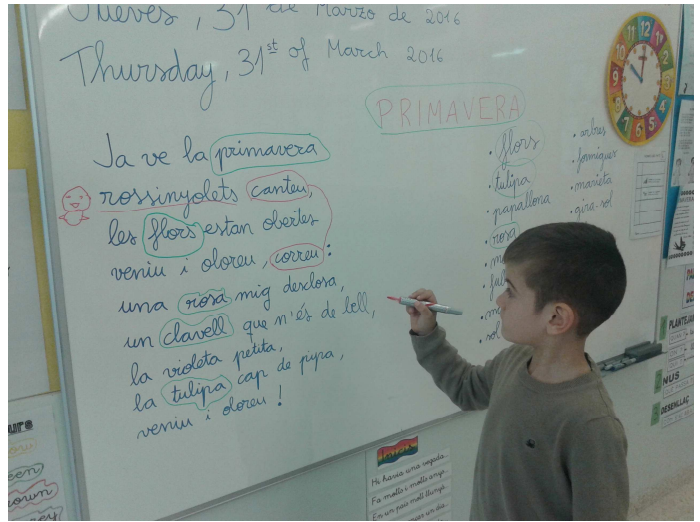 Jueves, 31 de Marzo de 2016
Thursday, 31st of March 2016
PRIMAVERA
Ja ve la primavera
rossinyolets canteu,
les flors estan obertes
veniu i oloreu, correu:
una rosa mig desclosa,
un clavell que n'és de bell,
la violeta petita,
la tulipa cap de pipa,
veniu i oloreu!
· flors
· tulipa
· papallona
· rosa
· arbres
· formigues
· marieta
· gira-sol
12
1
2
3
4
5
6
7
8
9
10
11
Hi havia una vegada,
Fa molts i molts anys,
En un país molt llunyà
NUS
DESENLLAÇ